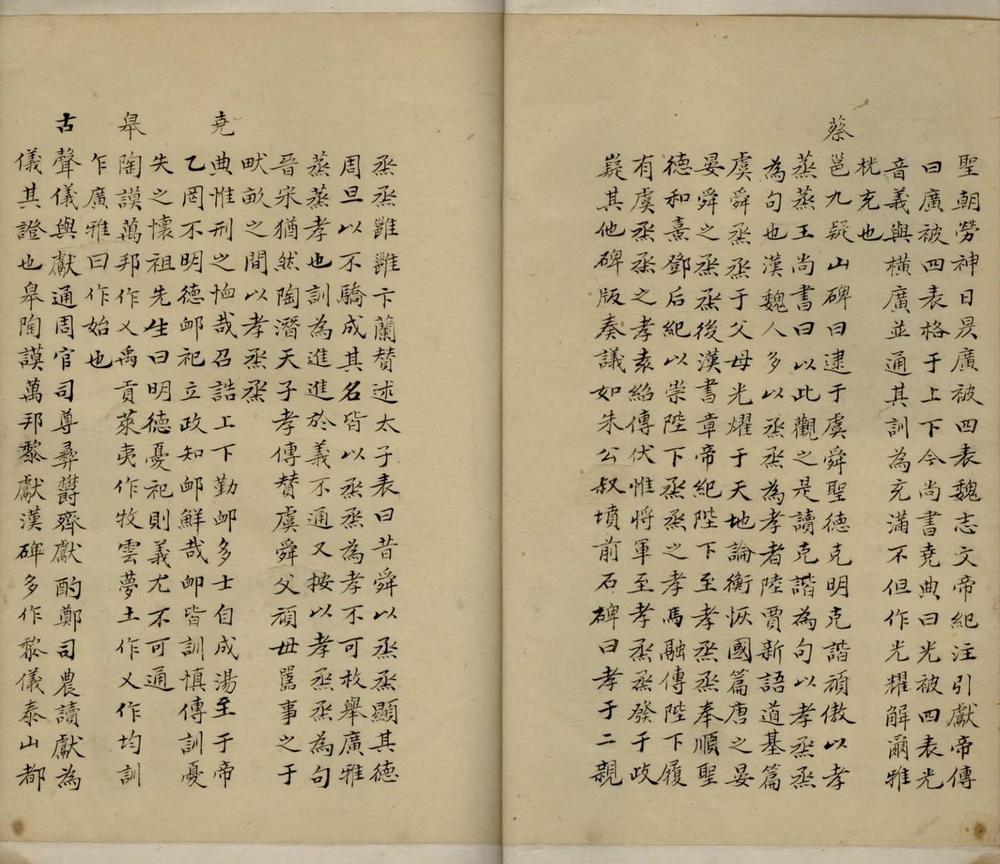 聖朝勞神日昃廣被四表魏志文帝紀注引獻帝傳
曰廣被四表格于上下今尚書堯典曰光被四表光
音義與橫廣並通其訓為充滿不但作光耀解爾雅
枕充也
蔡邕九疑山碑曰逮于虞舜聖德克明克諧頑傲以孝
蒸蒸王尚書曰以此觀之是讀克諧為句以孝烝烝
為句也漢魏人多以烝烝為孝者陸賈新語道基篇
虞舜烝烝于父母光耀于天地論衡恢國篇唐之晏
晏舜之烝烝後漢書章帝紀陛下至孝烝烝奉順聖
德和熹鄧后紀以崇陛下烝烝之孝馬融傳陛下履
有虞烝烝之孝袁紹傳伏惟將軍至孝烝烝發于岐
嶷其他碑版奏議如朱公叔墳前石碑曰孝于二親
烝烝雝雝卞蘭贊述太子表曰昔舜以烝烝顯其德
周旦以不驕成其名皆以烝烝為孝不可枚舉廣雅
蒸蒸孝也訓為進進於義不通又按以孝烝烝為句
晉宋猶然陶潛天子孝傳贊虞舜父頑母嚚事之于
畎畝之間以孝烝烝
堯典惟刑之恤哉召誥上下勤卹多士自成湯至于帝
乙罔不明德卹祀立政知卹鮮哉卹皆訓慎傳訓憂
失之懷祖先生曰明德憂祀則義尤不可通
皋陶謨萬邦作乂禹貢萊夷作牧雲夢土作乂作均訓
乍廣雅曰作始也
古聲儀與獻通周官司尊彝鬱齊獻酌鄭司農讀獻為
儀其證也皋陶謨萬邦黎獻漢碑多作黎儀泰山都